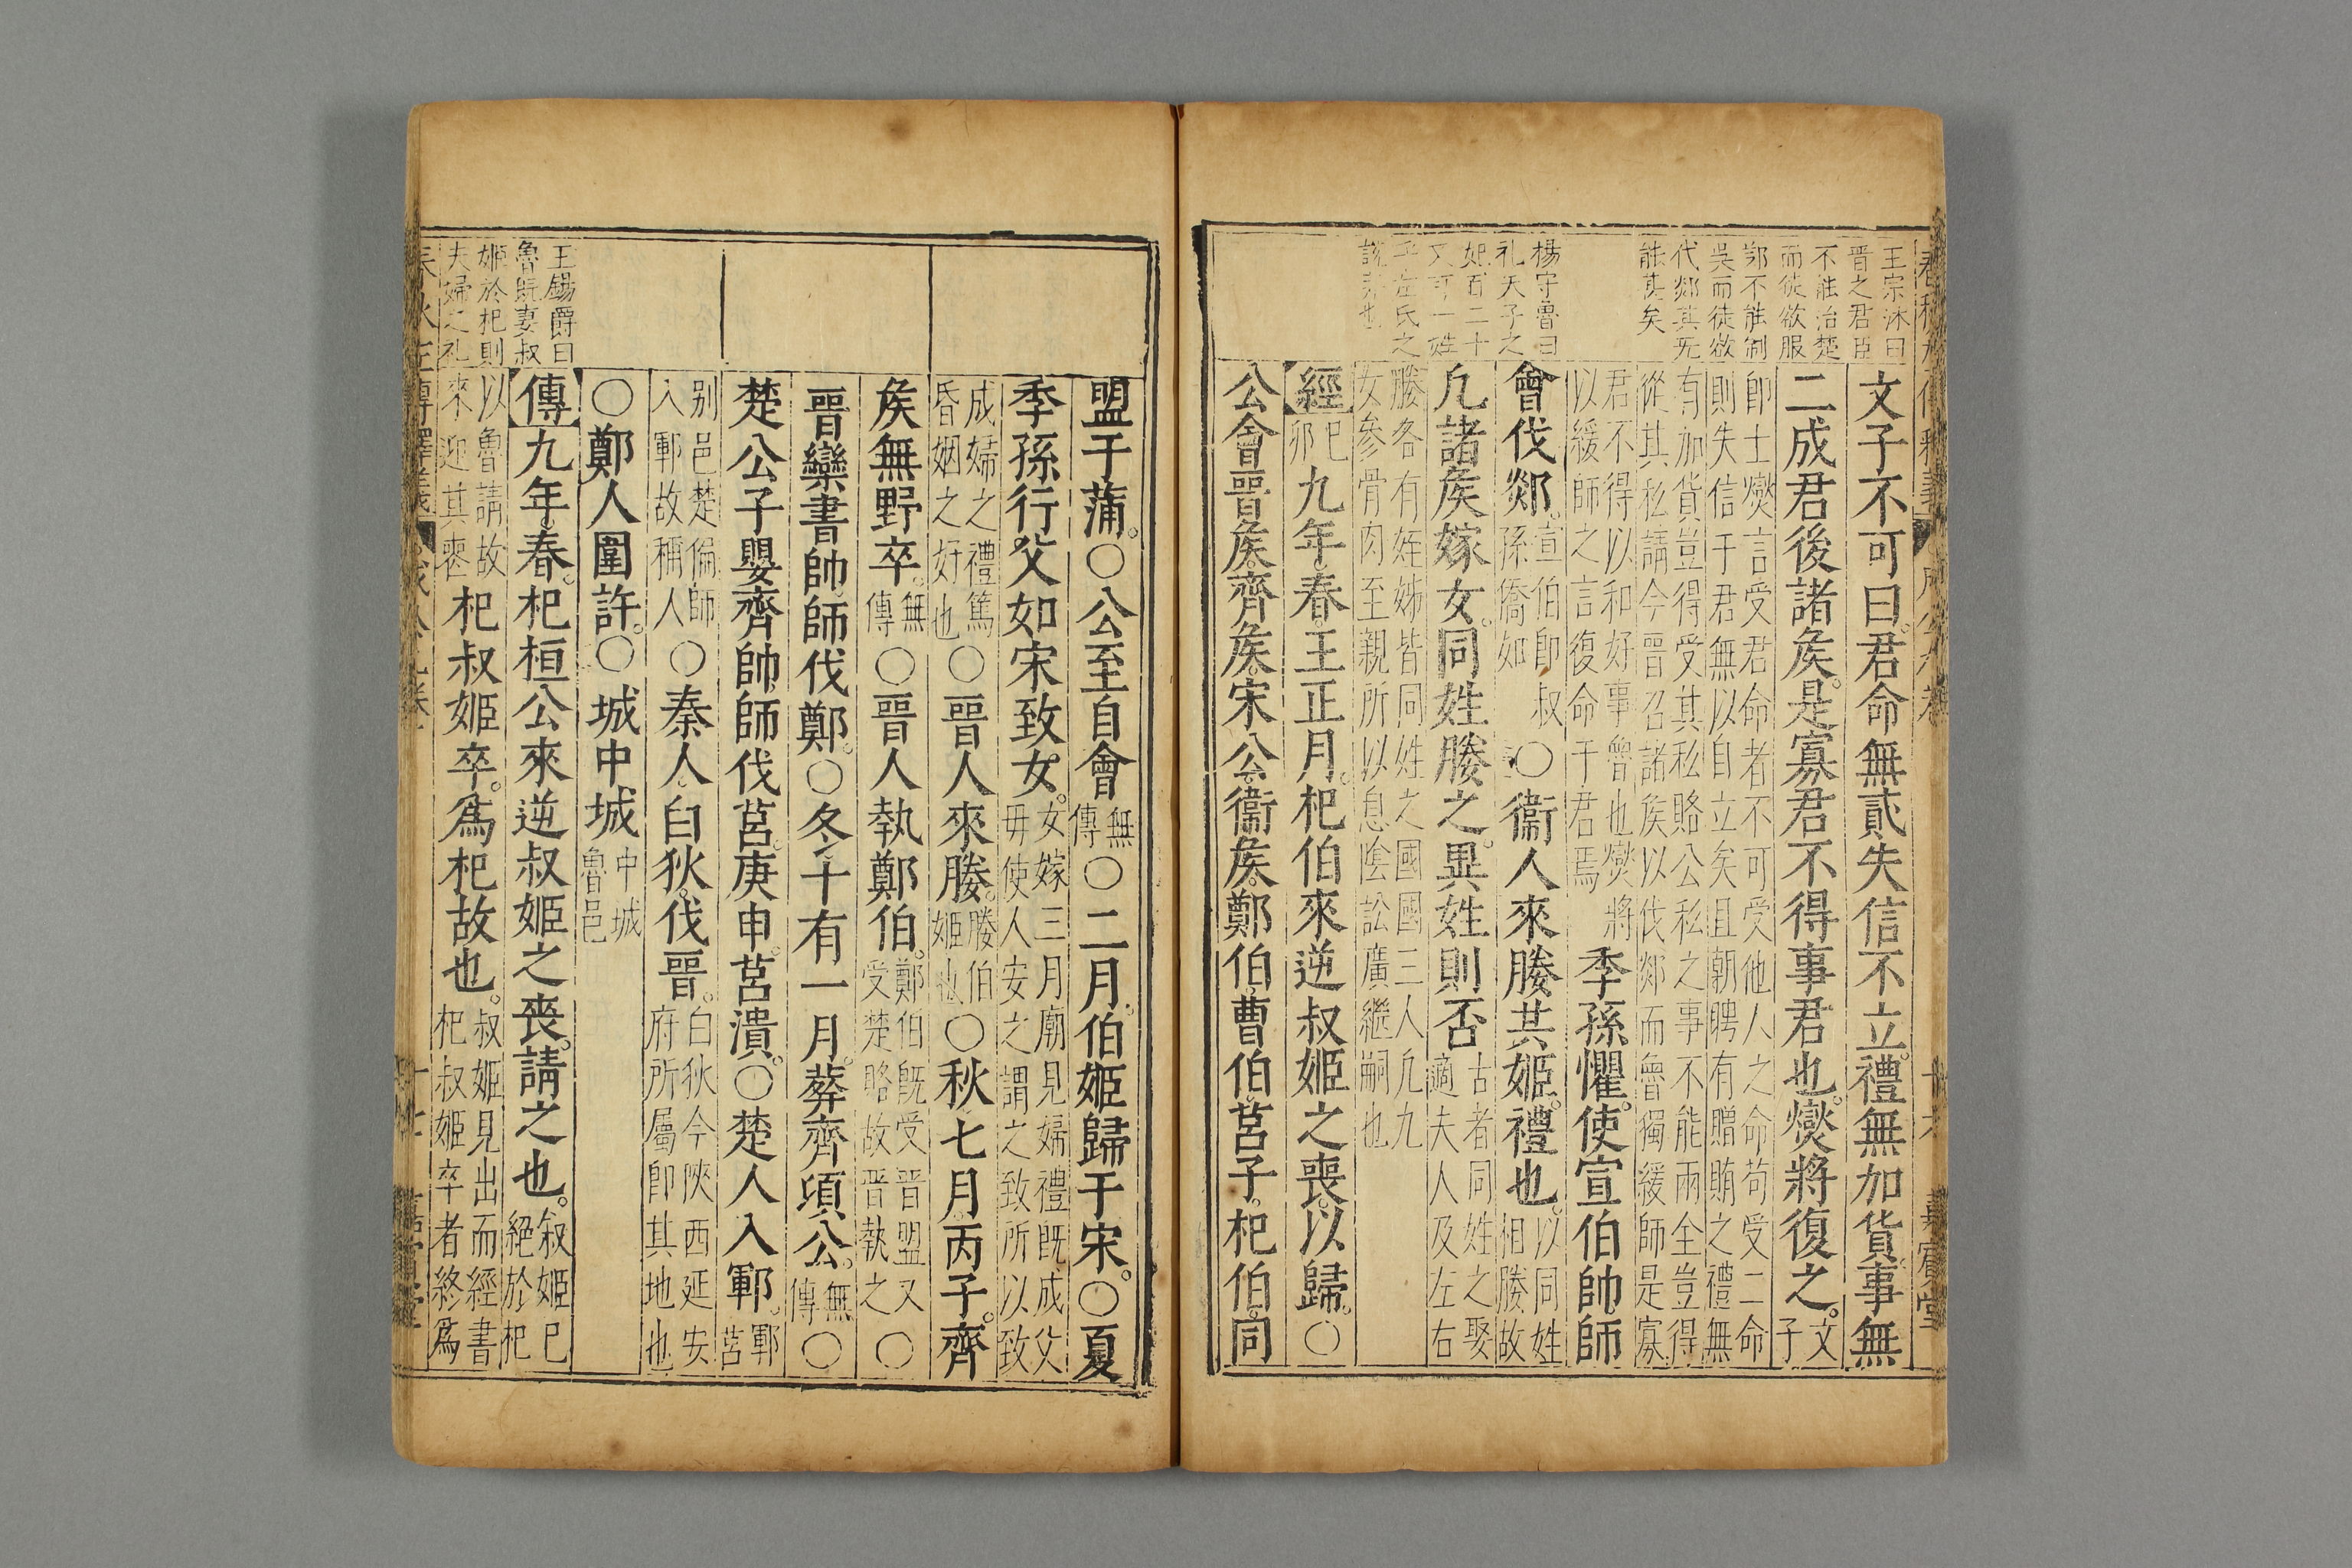 王宗沐曰
晉之君臣
不能治楚
而徒欲服
鄭不能制
吳而徒欲
代郯其旡
能甚矣
楊守魯曰
礼天子之
妃百二十
文子不可曰君命無貳失信不立禮無加貨事無
二成君後諸矦是寡君不得事君也燮將復之文子
卽士燮言受君命者不可受他人之命苟受二命
則失信于君無以自立矣且朝聘有贈賄之禮無
有加貨豈得受其私賂公私之事不能兩全豈得
從其私請今晋召諸矦以伐郯而魯獨緩師是寡
君不得以和好事魯也燮將
以緩師之言復命于君焉
季孫懼使宣伯帥師
會伐郯宣伯卽叔孫僑如○衞人來媵共姬禮也以同姓相媵故
凡諸矦嫁女同姓媵之異姓則否古者同姓之娶適夫人及左右
媵各有姪娣皆同姓之國國三人凡九
女參骨肉至親所以息陰訟廣繼嗣也
經巳卯九年春王正月杞伯來逆叔姬之喪以歸○
公會晋矦齊矦宋公衞矦鄭伯曹伯莒子杞伯同
盟于蒲○公至自會無傳○二月伯姬歸于宋○夏
季孫行父如宋致女女嫁三月廟見婦禮既成父母使人安之謂之致所以致
成婦之禮篤昏姻之好也○晋人來媵媵伯姬也○秋七月丙子齊
矦無野卒無傳○晋人執鄭伯鄭伯既受晋盟又受楚賂故晋執之○
晋欒書帥師伐鄭○冬十有一月葬齊頃公無傳○
楚公子嬰齊帥師伐莒庚申莒潰○楚人入鄆鄆莒
别邑楚偏師入鄆故稱人○秦人白狄伐晋白狄今陝西延安府所屬卽其地也
○鄭人圍許○城中城中城魯邑
王錫爵曰
魯既妻叔
姬於杞則
夫婦之礼
傳九年春杞桓公來逆叔姬之喪請之也叙姬巳絕於杞
以魯請故來迎其喪杞叔姬卒爲杞故也叔姬見出而經書杞叔姬卒者終爲